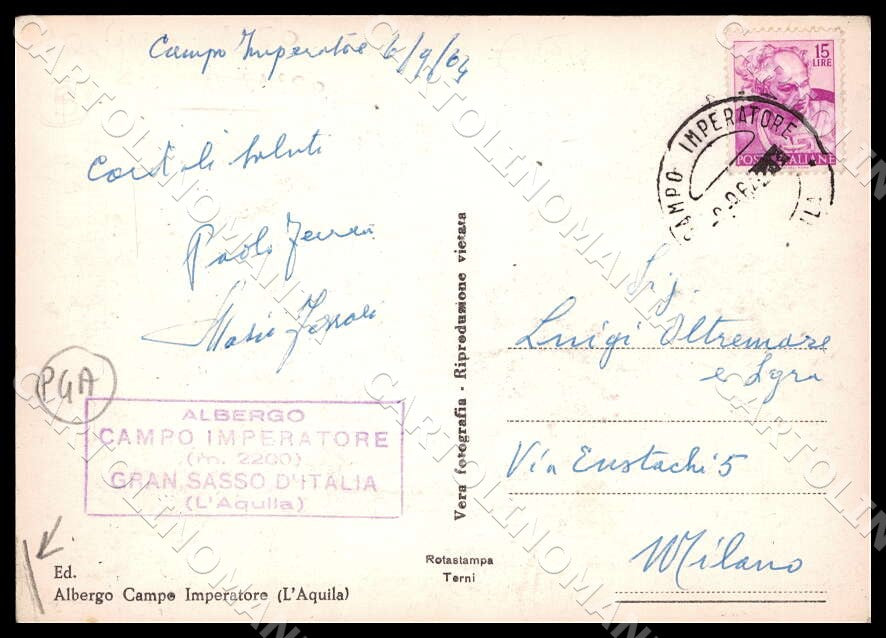 Campo Imperatore 6/9/64
Cordiali saluti
Paolo Ferrari
Maria Ferrari
PGA
ALBERGO
CAMPO IMPERATORE
(m. 2200)
GRAN SASSO D'ITALIA
(L'Aquila)
Ed.
Albergo Campo Imperatore (L'Aquila)
Vera fotografia - Riproduzione vietata
Rotastampa
Terni
15
LIRE
POSTE ITALIANE
CAMPO IMPERATORE
Sig.
Luigi Oltremare
e Sgra
Via Eustachi 5
Milano
CARTOLINOMANIA